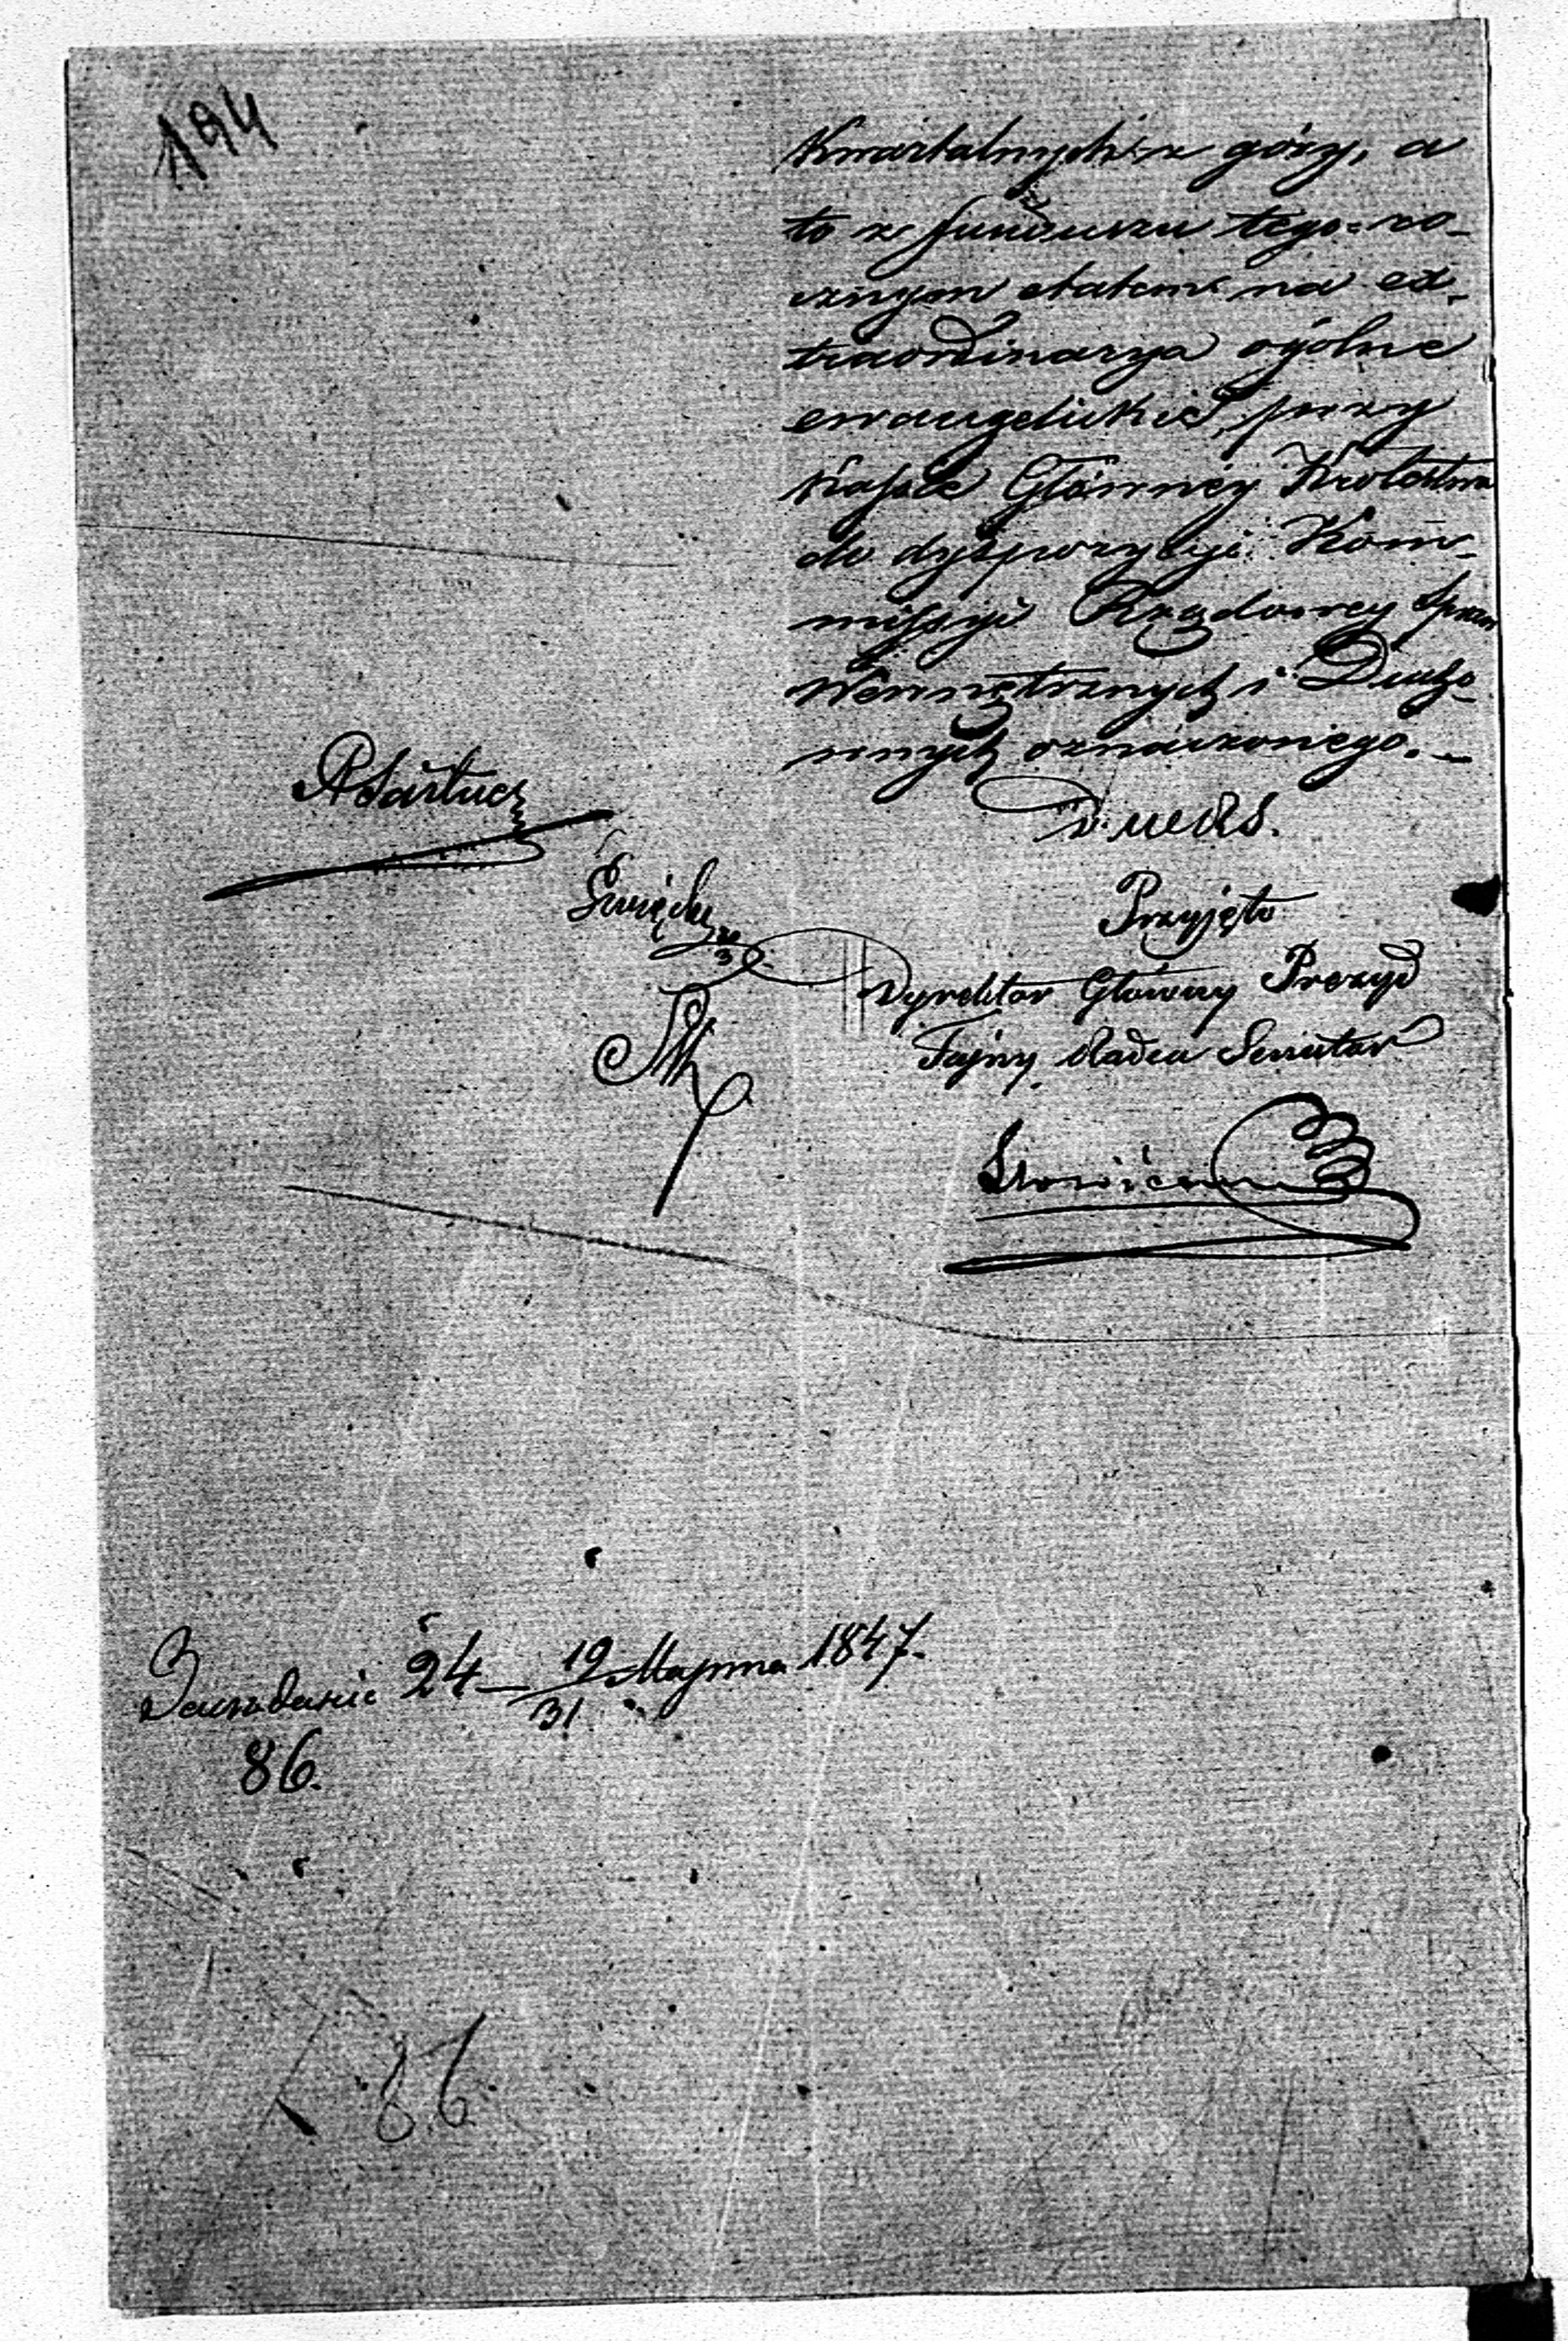 194
Kwartalnych z góry, a
to z funduszu tego=ro-
cznym etatem na ex-
traordinarya ogólne
ewangelickie, przy
Kassie Głównéy Królestwa
do dyspozycyi Kom-
missyi Rządowey Spraw
Wewnętrznych iDucho-
wnych oznaczonego.
Przyjęto
Dyrektor Główny Prezyd
Tajny Radca Senator
24 19/31 Marca 1847.
86.
86